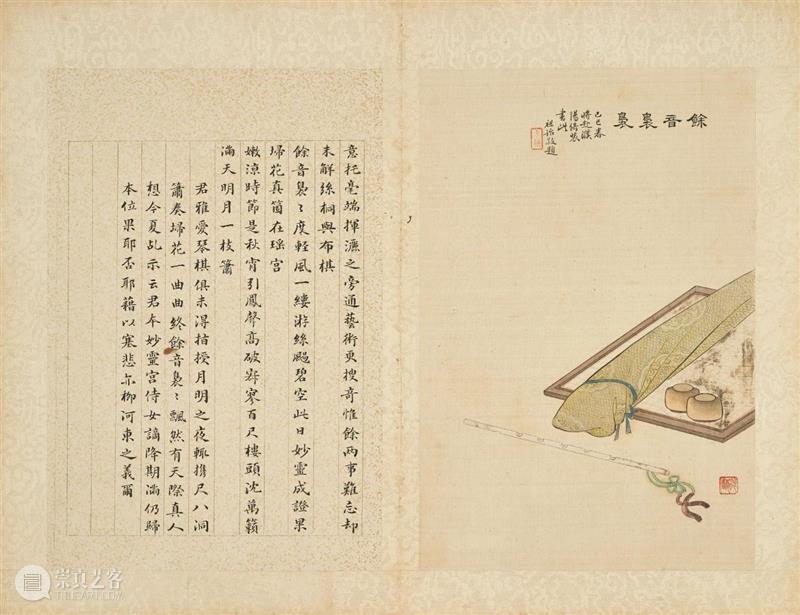 餘音裊裊
己巳春
將赴濮
陽倚裝
書此
祖詒敬題
意托毫端揮灑之旁通藝術更搜奇惟餘兩事難忘却
未解絲桐與布棋
餘音裊〻度輕風一縷游絲颺碧空此日妙靈成證果
埽花真箇在瑤宮
嫩涼時節是秋宵引鳳聲高破寂寥百尺樓頭沈萬籟
滿天明月一枝簫
君雅愛琴棋俱未得指授月明之夜輒攜尺八洞
簫奏埽花一曲曲終餘音裊〻飄然有天際真人
想今夏乩示云君本妙靈宮侍女謫降期滿仍歸
本位果耶否耶藉以寒悲亦柳河東之義爾
崇真艺客
TRUEART.COM